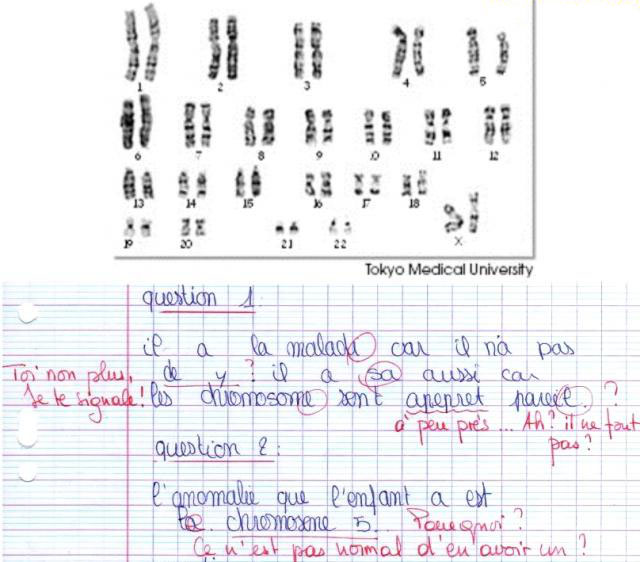 1 2 3 4 5
6 7 8 9 10 11 12
13 14 15 16 17 18
19 20 21 22 X
Tokyo Medical University
question 1
il a la maladi car il n'a pas
Toi non plus, de y ? il a sa aussi car
Je te signale! les chromosome sont apepret pareil. ?
à peu près... Ah? il ne faut
pas?
question 2:
l'anomalie que l'enfant a est
chromosome 5. Pourquoi?
Ce n'est pas normal d'en avoir un?